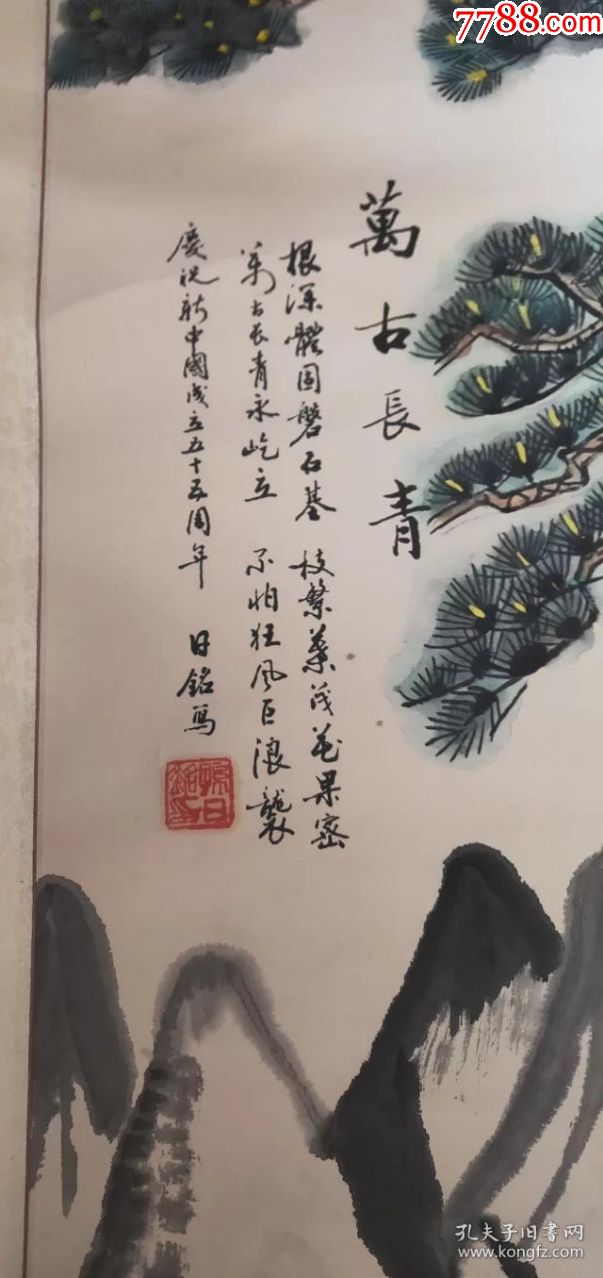 7788.com
萬古長青
根深體固磐石基 枝繁葉茂花果密
萬古長青永屹立 不怕狂風巨浪襲
慶祝新中國成立五十五周年 日銘寫
孔夫子旧书网
www.kongfz.com